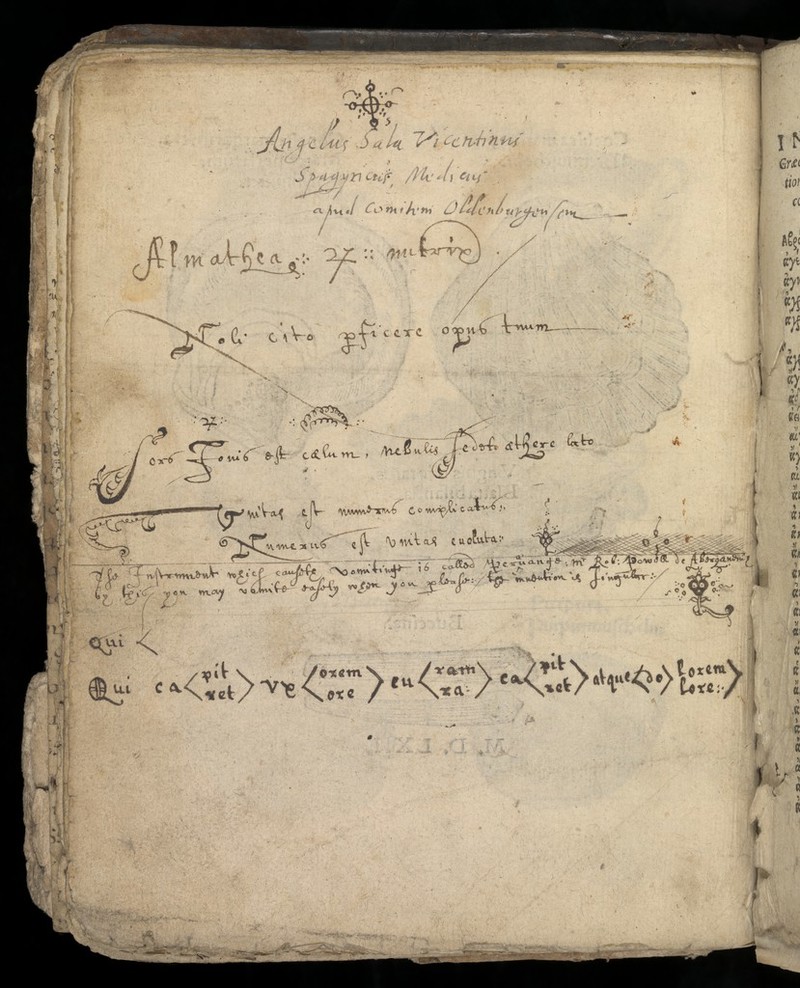 Angelus Sala Vicentinus
Spagyricus, Medicus
apud Comitem Oldenburgensem
Almathea ♃ nutrix
Noli cito ꝑficere opus tuum
♃
Sors Jouis est cælum, nebulis sedet æthere læto
Vnitas est numerus complicatus
Numerus est Vnitas euoluta
The Instrument which causethe vomitinge is called mr Rob: Powell de Abergavenny
by this you may vomite easely when you please: the inuention is singuler:
Qui <
Qui ca<pit ret> vx<orem ore> cu<ram ra:> ca<pit ret> atque<do> lorem lore:
M. D. LXI
IN